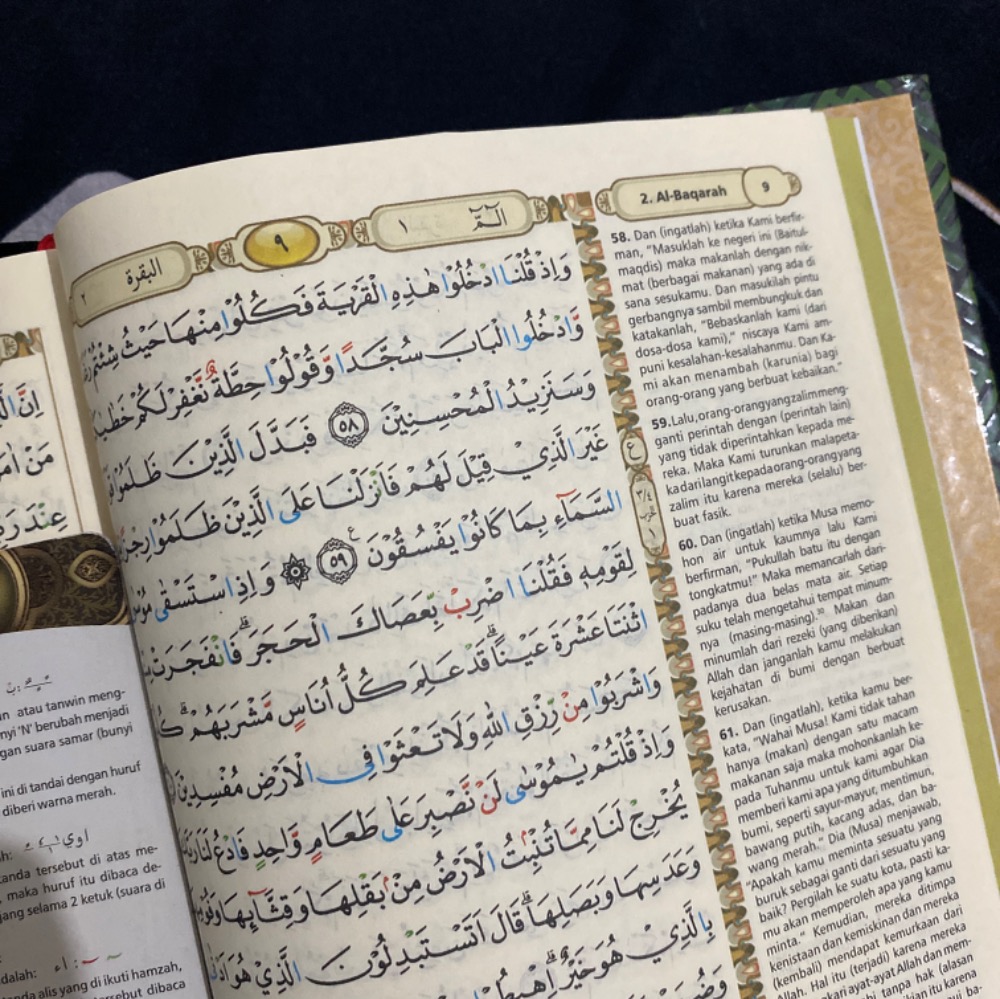 البقرة ٢
٩
الـمّ ١
2. Al-Baqarah 9
وَاِذْ قُلْنَا ادْخُلُوْا هٰذِهِ الْقَرْيَةَ فَكُلُوْا مِنْهَا حَيْثُ شِئْتُمْ
وَّادْخُلُوا الْبَابَ سُجَّدًا وَّقُوْلُوْا حِطَّةٌ نَّغْفِرْ لَكُمْ
وَسَنَزِيْدُ الْمُحْسِنِيْنَ ٥٨ فَبَدَّلَ الَّذِيْنَ ظَلَمُوْا
غَيْرَ الَّذِيْ قِيْلَ لَهُمْ فَاَنْزَلْنَا عَلَى الَّذِيْنَ ظَلَمُوْا
السَّمَاۤءِ بِمَا كَانُوْا يَفْسُقُوْنَ ࣖ ٥٩ ۞ وَاِذِ اسْتَسْقٰى
لِقَوْمِهٖ فَقُلْنَا اضْرِبْ بِّعَصَاكَ الْحَجَرَۗ فَانْفَجَرَتْ
اثْنَتَا عَشْرَةَ عَيْنًاۗ قَدْ عَلِمَ كُلُّ اُنَاسٍ مَّشْرَبَهُمْۗ
وَاشْرَبُوْا مِنْ رِّزْقِ اللّٰهِ وَلَا تَعْثَوْا فِى الْاَرْضِ مُفْسِدِيْنَ
وَاِذْ قُلْتُمْ يٰمُوْسٰى لَنْ نَّصْبِرَ عَلٰى طَعَامٍ وَّاحِدٍ فَادْعُ لَنَا
يُخْرِجْ لَنَا مِمَّا تُنْۢبِتُ الْاَرْضُ مِنْۢ بَقْلِهَا وَقِثَّاۤىِٕهَا
وَعَدَسِهَا وَبَصَلِهَاۗ قَالَ اَتَسْتَبْدِلُوْنَ الَّذِيْ هُوَ
بِالَّذِيْ هُوَ خَيْرٌۗ
58. Dan (ingatlah) ketika Kami berfir-
man, "Masuklah ke negeri ini (Baitul-
maqdis) maka makanlah dengan nik-
mat (berbagai makanan) yang ada di
sana sesukamu. Dan masukilah pintu
gerbangnya sambil membungkuk dan
katakanlah, "Bebaskanlah kami (dari
dosa-dosa kami)," niscaya Kami am-
puni kesalahan-kesalahanmu. Dan Ka-
mi akan menambah (karunia) bagi
orang-orang yang berbuat kebaikan."
59. Lalu, orang-orang yang zalim meng-
ganti perintah dengan (perintah lain)
yang tidak diperintahkan kepada me-
reka. Maka Kami turunkan malapeta-
ka dari langit kepada orang-orang yang
zalim itu karena mereka (selalu) ber-
buat fasik.
60. Dan (ingatlah) ketika Musa memo-
hon air untuk kaumnya lalu Kami
berfirman, "Pukullah batu itu dengan
tongkatmu!" Maka memancarlah dari-
padanya dua belas mata air. Setiap
suku telah mengetahui tempat minum-
nya (masing-masing).³⁰ Makan dan
minumlah dari rezeki (yang diberikan)
Allah dan janganlah kamu melakukan
kejahatan di bumi dengan berbuat
kerusakan.
61. Dan (ingatlah), ketika kamu ber-
kata, "Wahai Musa! Kami tidak tahan
hanya (makan) dengan satu macam
makanan saja maka mohonkanlah ke-
pada Tuhanmu untuk kami agar Dia
memberi kami apa yang ditumbuhkan
bumi, seperti sayur-mayur, mentimun,
bawang putih, kacang adas, dan ba-
wang merah." Dia (Musa) menjawab,
"Apakah kamu meminta sesuatu yang
buruk sebagai ganti dari sesuatu yang
baik? Pergilah ke suatu kota, pasti ka-
mu akan memperoleh apa yang kamu
minta." Kemudian, mereka ditimpa
kenistaan dan kemiskinan dan mereka
(kembali) mendapat kemurkaan dari
Allah. Hal itu (terjadi) karena mereka
ayat-ayat Allah dan mem-
tanpa hak (alasan
itu karena
atau tanwin meng-
'N' berubah menjadi
suara samar (bunyi
ini di tandai dengan huruf
diberi warna merah.
tanda tersebut di atas me-
maka huruf itu dibaca de-
selama 2 ketuk (suara di
alis yang di ikuti hamzah,
tersebut dibaca